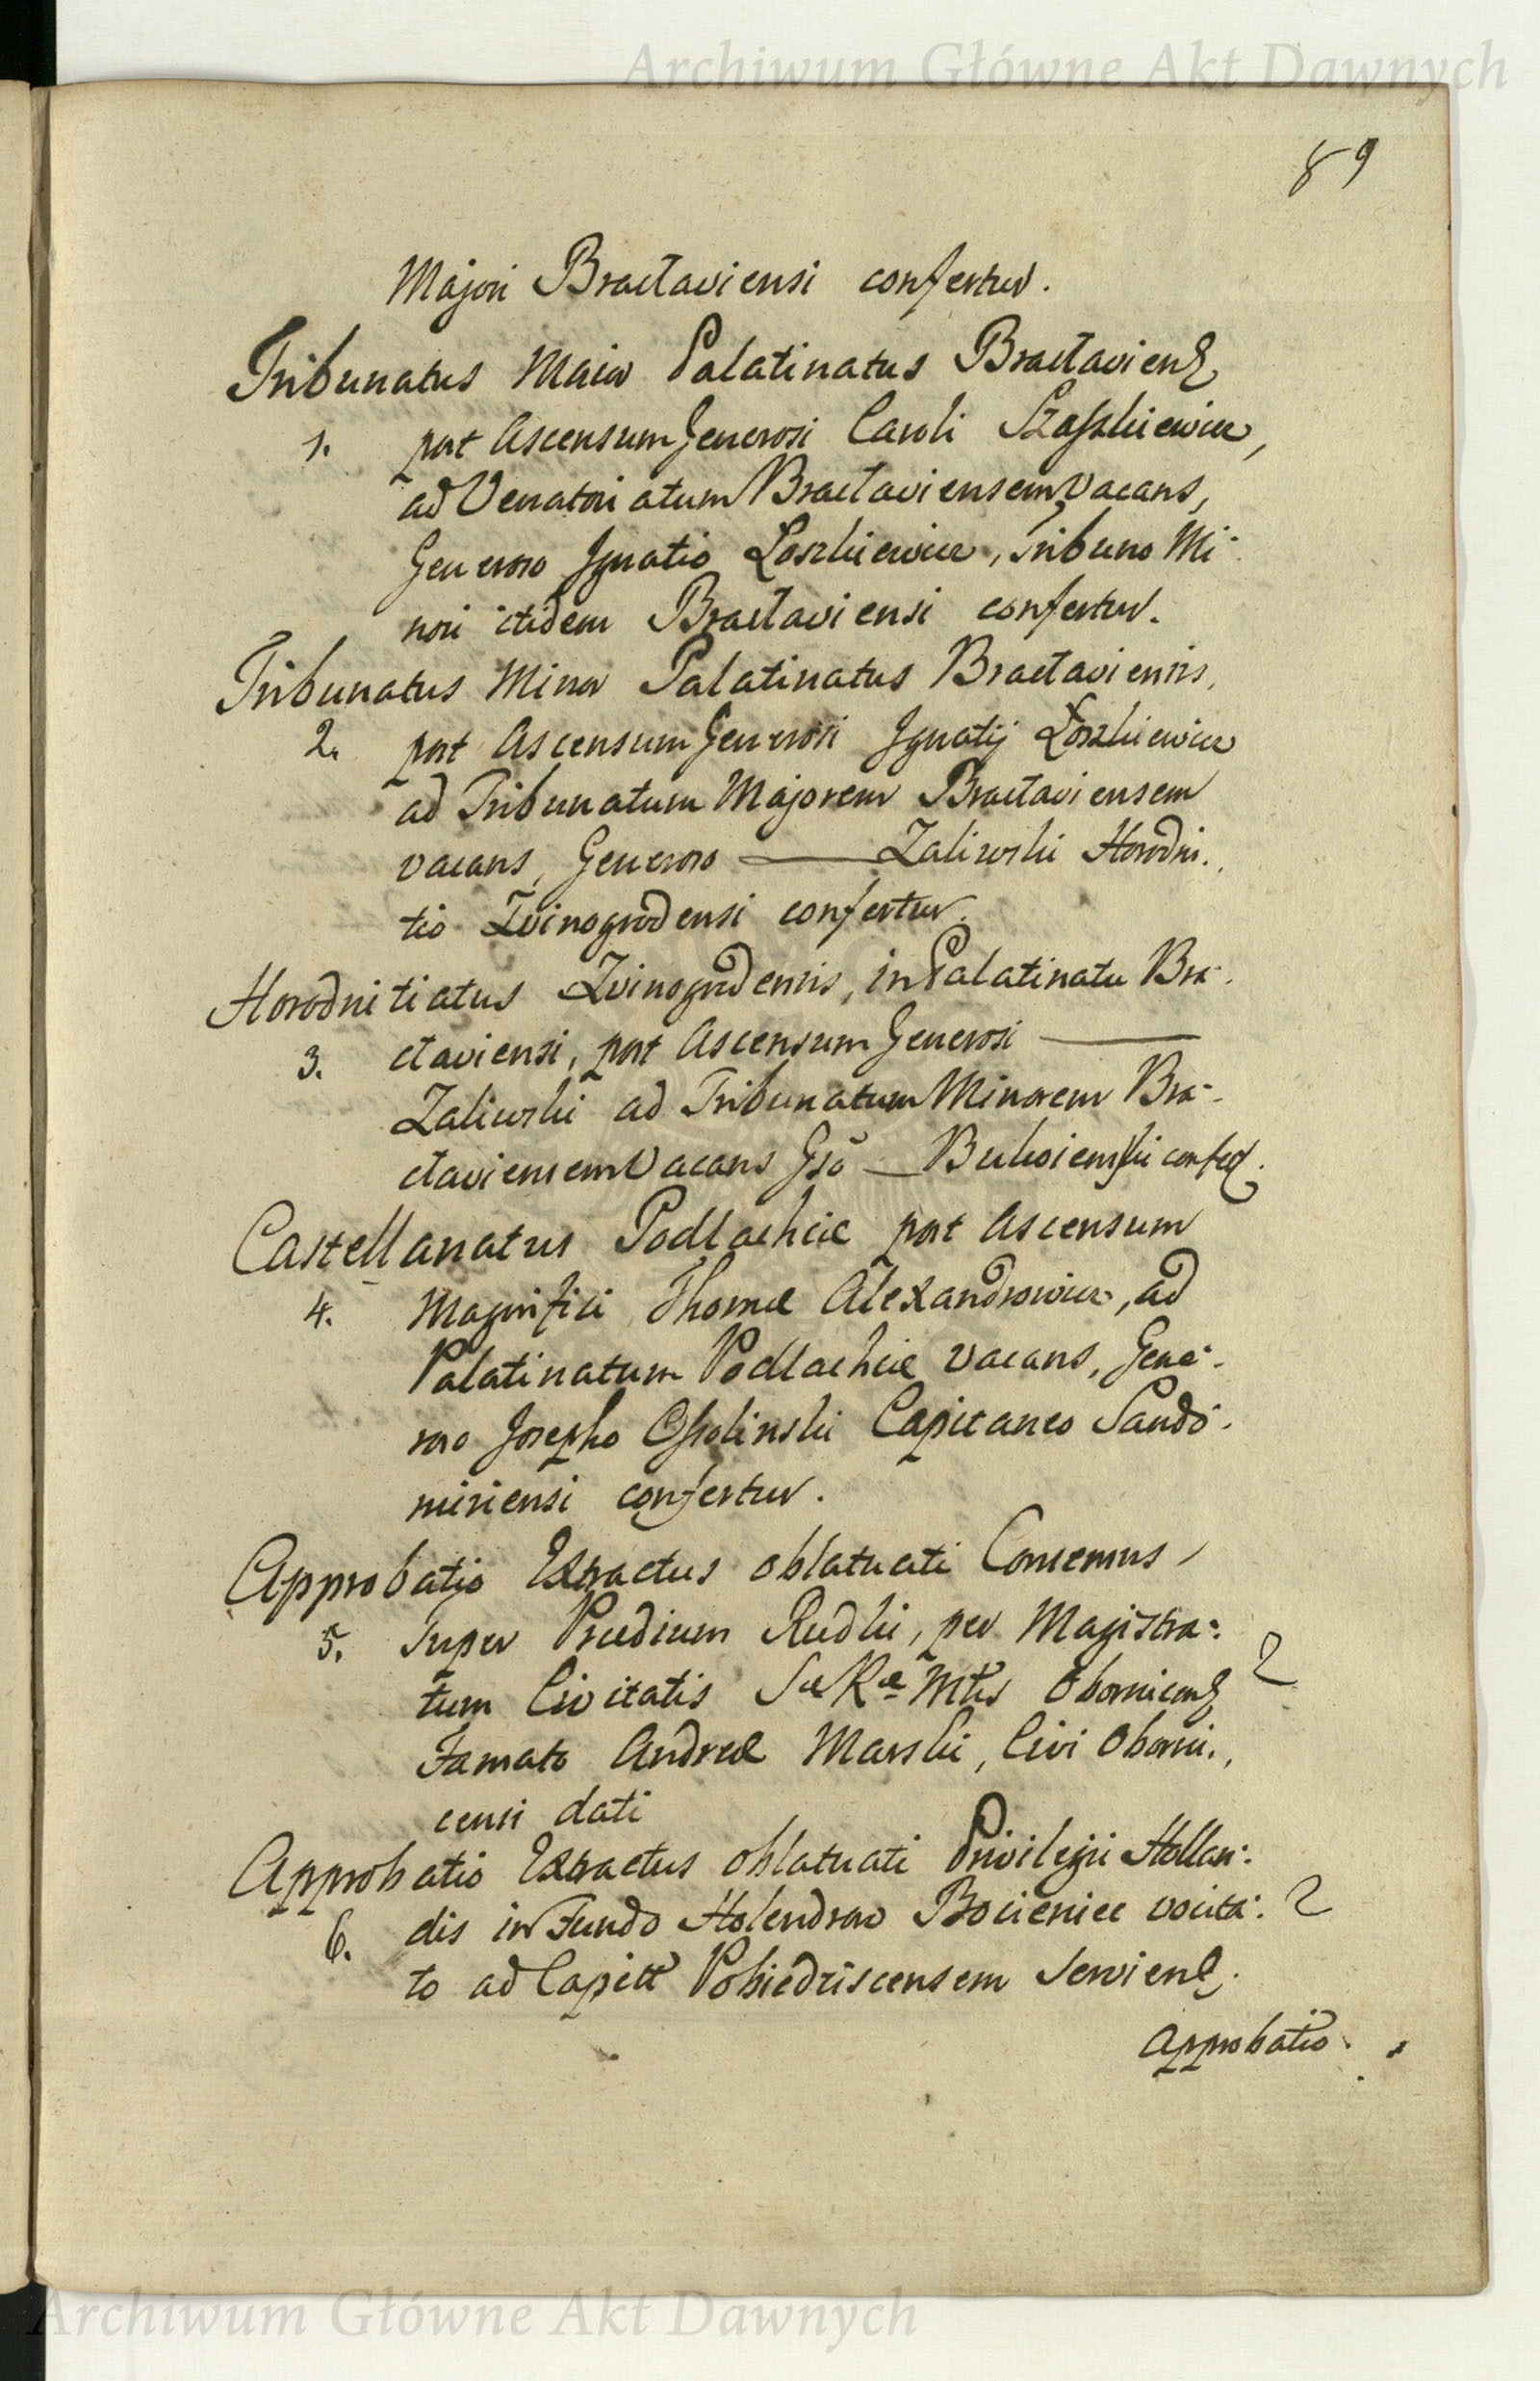 Archiwum Główne Akt Dawnych
89
Majori Braclaviensi confertur.
Tribunatus Maior Palatinatus Braclavien͠
1. post Ascensum Generosi Caroli Szaszkiewicz,
ad Venatoriatum Braclaviensem vacans,
Generoso Ignatio Loszkiewicz, Tribuno Mi-
nori itidem Braclaviensi confertur.
Tribunatus Minor Palatinatus Braclaviensis,
2. post Ascensum Generosi Ignatij Łoszkiewicz
ad Tribunatum Majorem Braclaviensem
vacans, Generoso —— Zaliwski Horodni-
tio Zvinogrodensi confertur.
Horodnitiatus Zvinogrodensis, in Palatinatu Bra-
3. claviensi, post Ascensum Generosi ——
Zaliwski ad Tribunatum Minorem Bra-
claviensem vacans Gso — confert.
Castellanatus Podlachiæ post Ascensum
4. Magnifici Thomæ Alexandrowicz, ad
Palatinatum Podlachiæ vacans, Gene-
roso Josepho Ossolinski Capitaneo Sando-
miriensi confertur.
Approbatio Extractus oblatuati Consensus
5. Super Prædium Rudki, per Magistra-
tum Civitatis Sæ Ræ Mtis Obornicen͠
Famato Andreæ Marski, Civi Oborni-
censi dati
Approbatio Extractus oblatuati Privilegii Hollan-
6. dis in Fundo Holendrow Bocieniec vocita-
to ad Capitt Pobiedziscensem servien͠.
Approbatio
Archiwum Główne Akt Dawnych